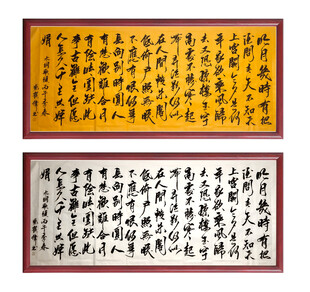 明月幾時有把
酒問青天不知天
上宮闕今夕是何
年我欲乘風歸
去又恐瓊樓玉宇
高處不勝寒起
舞弄清影何似
在人間轉朱閣
低綺户照無眠
不應有恨何事
長向别時圓人
有悲歡離合月
有陰晴圓缺此
事古難全但願
人長久千里共嬋
娟
水調歌頭丙午季春
明月幾時有把
酒問青天不知天
上宮闕今夕是何
年我欲乘風歸
去又恐瓊樓玉宇
高處不勝寒起
舞弄清影何似
在人間轉朱閣
低綺户照無眠
不應有恨何事
長向别時圓人
有悲歡離合月
有陰晴圓缺此
事古難全但願
人長久千里共嬋
娟
水調歌頭丙午季春